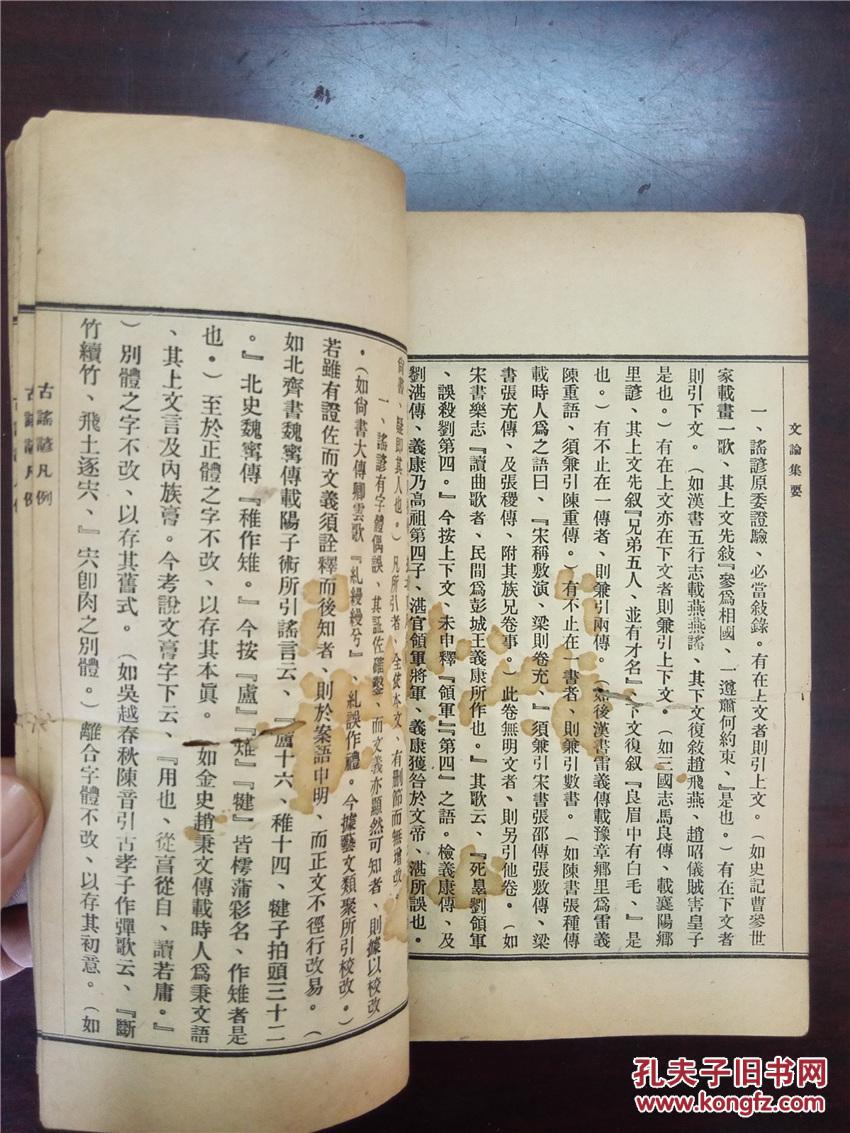 文論集要
一、謠諺原委證驗、必當敍錄。有在上文者則引上文。（如史記曹參世
家載畫一歌、其上文先敍『參爲相國、一遵蕭何約束、』是也。）有在下文者
則引下文。（如漢書五行志載燕燕謠、其下文復敍趙飛燕、趙昭儀賊害皇子
是也。）有在上文亦在下文者則兼引上下文。（如三國志馬良傳、載襄陽鄉
里諺、其上文先叙『兄弟五人、並有才名』、下文復叙『良眉中有白毛、』是
也。）有不止在一傳者、則兼引兩傳。（如後漢書雷義傳載豫章鄉里爲雷義
陳重語、須兼引陳重傳。）有不止在一書者、則兼引數書。（如陳書張種傳
載時人爲之語曰、『宋稱敷演、梁則卷充、』須兼引宋書張邵傳張敷傳、梁
書張充傳、及張稷傳、附其族兄卷事。）此卷無明文者、則另引他卷。（如
宋書樂志『讀曲歌者、民間爲彭城王義康所作也。』其歌云、『死辠劉領軍
、誤殺劉第四。』今按上下文、未申釋『領軍』『第四』之語。檢義康傳、及
劉湛傳、義康乃高祖第四子、湛官領軍將軍、義康獲咎於文帝、湛所誤也。
尙書、疑卽其人也。）凡所引者、全依本文、有刪節而無增改。
一、謠諺有字體偶誤、其証佐確鑿、而文義亦顯然可知者、則據以校改
。（如尙書大傳卿雲歌『糺縵縵兮』、糺誤作禮。今據藝文類聚所引校改。）
若雖有證佐而文義須詮釋而後知者、則於案語申明、而正文不徑行改易。（
如北齊書魏寗傳載陽子術所引謠言云、『盧十六、稚十四、犍子拍頭三十二
。』北史魏寗傳『稚作雉。』今按『盧』『雉』『犍』皆樗蒲彩名、作雉者是
也。）至於正體之字不改、以存其本眞。（如金史趙秉文傳載時人爲秉文語
、其上文言及內族膏。今考說文膏字下云、『用也、從亯從自、讀若庸。』
）別體之字不改、以存其舊式。（如吳越春秋陳音引古孝子作彈歌云、『斷
竹續竹、飛土逐宍、』宍卽肉之別體。）離合字體不改、以存其初意。（如
古謠諺凡例
古謠諺凡例
孔夫子旧书网
www.kongfz.com